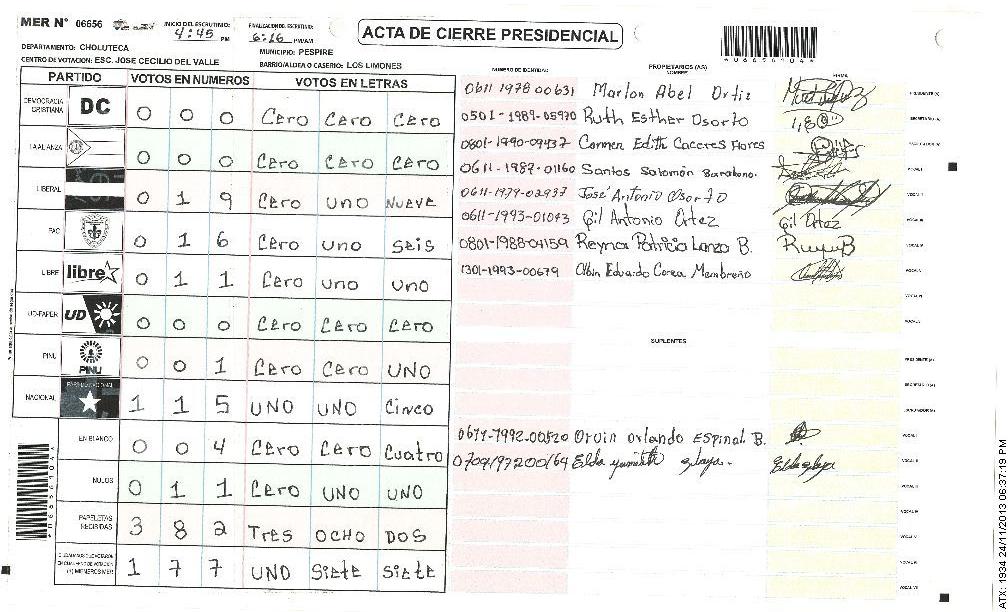 MER N° 06656
INICIO DEL ESCRUTINIO: 4:45 PM
FINALIZACION DEL ESCRUTINIO: 6:16 PM/AM
ACTA DE CIERRE PRESIDENCIAL
*06656104*
DEPARTAMENTO: CHOLUTECA
MUNICIPIO: PESPIRE
CENTRO DE VOTACION: ESC. JOSE CECILIO DEL VALLE
BARRIO/ALDEA O CASERIO: LOS LIMONES
PARTIDO VOTOS EN NUMEROS VOTOS EN LETRAS
DEMOCRACIA CRISTIANA DC 0 0 0 Cero Cero Cero
LA ALIANZA 0 0 0 Cero Cero Cero
LIBERAL 0 1 9 Cero uno Nueve
PAC 0 1 6 Cero uno Seis
LIBRE libre 0 1 1 Cero uno uno
UD-FAPER UD 0 0 0 Cero Cero Cero
PINU PINU 0 0 1 Cero Cero UNO
NACIONAL 1 1 5 UNO UNO Cinco
EN BLANCO 0 0 4 Cero Cero Cuatro
NULOS 0 1 1 Cero UNO UNO
PAPELETAS RECIBIDAS 3 8 2 Tres OCHO DOS
1 7 7 UNO Siete Siete
NUMERO DE IDENTIDAD PROPIETARIOS (AS) NOMBRE FIRMA
0611 1978 00631 Marlon Abel Ortiz PRESIDENTE (A)
0501-1989-05970 Ruth Esther Osorto SECRETARIO (A)
0801-1990-09437 Carmen Edith Caceres Flores ESCRUTADOR (A)
0611-1987-01160 Santos Salomón Barahona. VOCAL I
0611-1979-02937 José Antonio Osorto VOCAL II
0611-1993-01043 Gil Antonio Ortez Gil Ortez VOCAL III
0801-1988-04159 Reyna Patricia Lanza B. VOCAL IV
1301-1993-00679 Albin Eduardo Correa Membreño VOCAL V
VOCAL VI
SUPLENTES
PRESIDENTE (A)
SECRETARIO (A)
ESCRUTADOR (A)
0611-1992-00820 Orvin Orlando Espinal B. VOCAL I
0709197200164 Elda zelaya. Elda zelaya VOCAL II
VOCAL III
VOCAL IV
VOCAL V
VOCAL VI
VOCAL VII
ATX: 1934 24/11/2013 06:37:19 PM